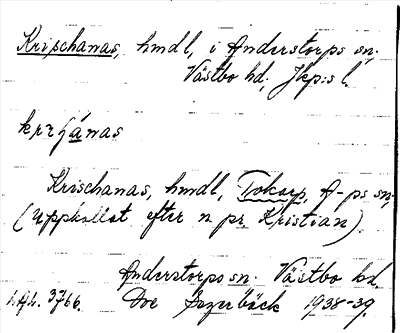 Krischanas, hmdl, i Anderstorps sn.
Västbo hd, Jkp:s l.
Krischanas, hmdl, Tokarp, A-ps sn,
(Uppkallat efter n pr. Kristian)
Anderstorps sn. Västbo hd
3766. 1938-39.